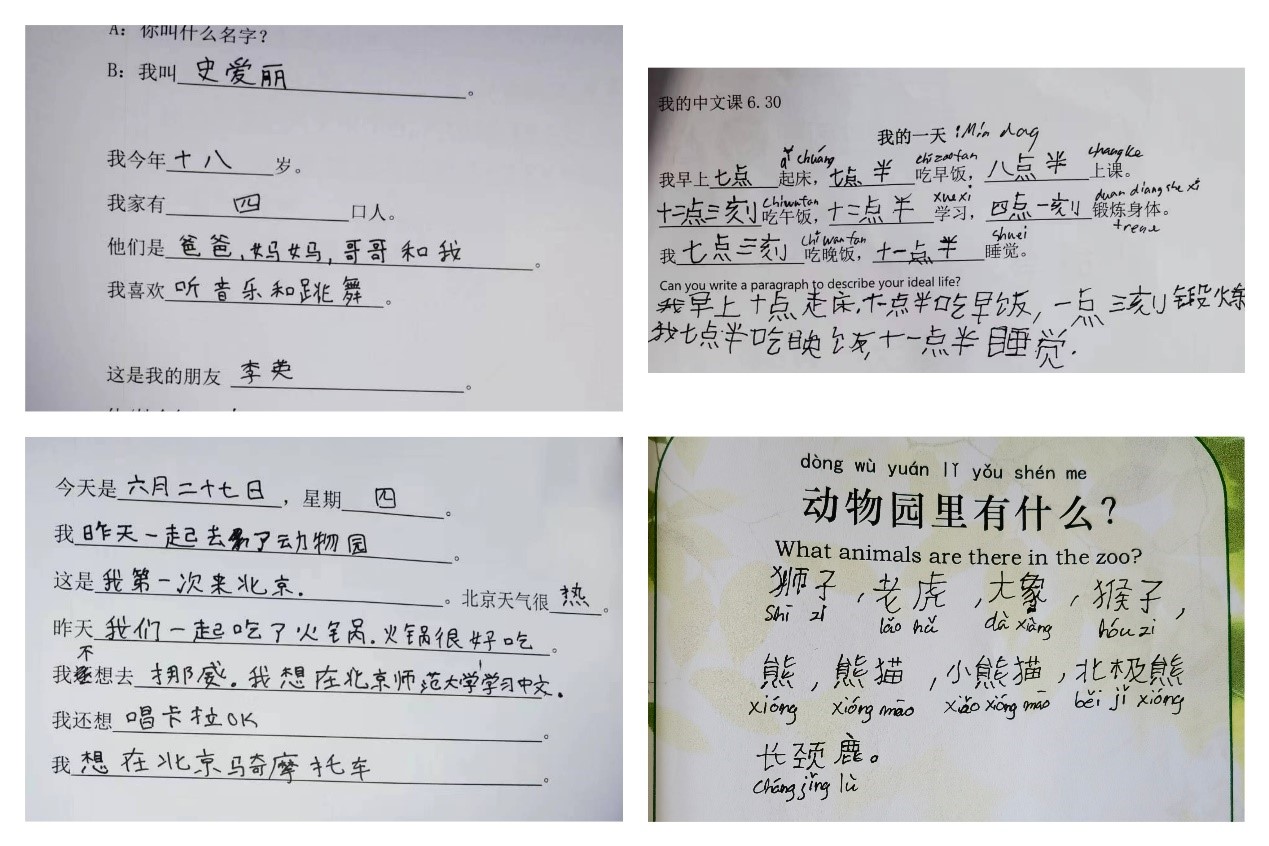 A：你叫什么名字？
B：我叫 史爱丽 。
我今年 十八 岁。
我家有 四 口人。
他们是 爸爸、妈妈，哥哥和我 。
我喜欢 听音乐和跳舞 。
这是我的朋友 李英 。
我的中文课 6.30
我的一天
我早上 七点 起床， 七点半 吃早饭， 八点半 上课。
十二点三刻 吃午饭， 十三点半 学习， 四点一刻 锻炼身体。
我 七点三刻 吃晚饭， 十一点半 睡觉。
Can you write a paragraph to describe your ideal life?
我早上十点起床，十点半吃早饭，一点三刻锻炼
我七点半吃晚饭，十一点半睡觉.
今天是 六月二十七日 ，星期 四 。
我 昨天一起去了动物园 。
这是 我第一次来北京. 。北京天气很 热 。
昨天 我们一起吃了火锅.火锅很好吃 。
我不想去 挪威。我想在北京师范大学学习中文。
我还想 唱卡拉OK 。
我 想在北京马奇摩托车 。
dòng wù yuán lǐ yǒu shén me
动物园里有什么？
What animals are there in the zoo?
狮子，老虎，大象，猴子，
shī zi lǎo hǔ dà xiàng hóu zi
熊，熊猫，小熊猫，北极熊
xióng xióng māo xiǎo xióng māo běi jǐ xióng
长颈鹿。
cháng jǐng lù